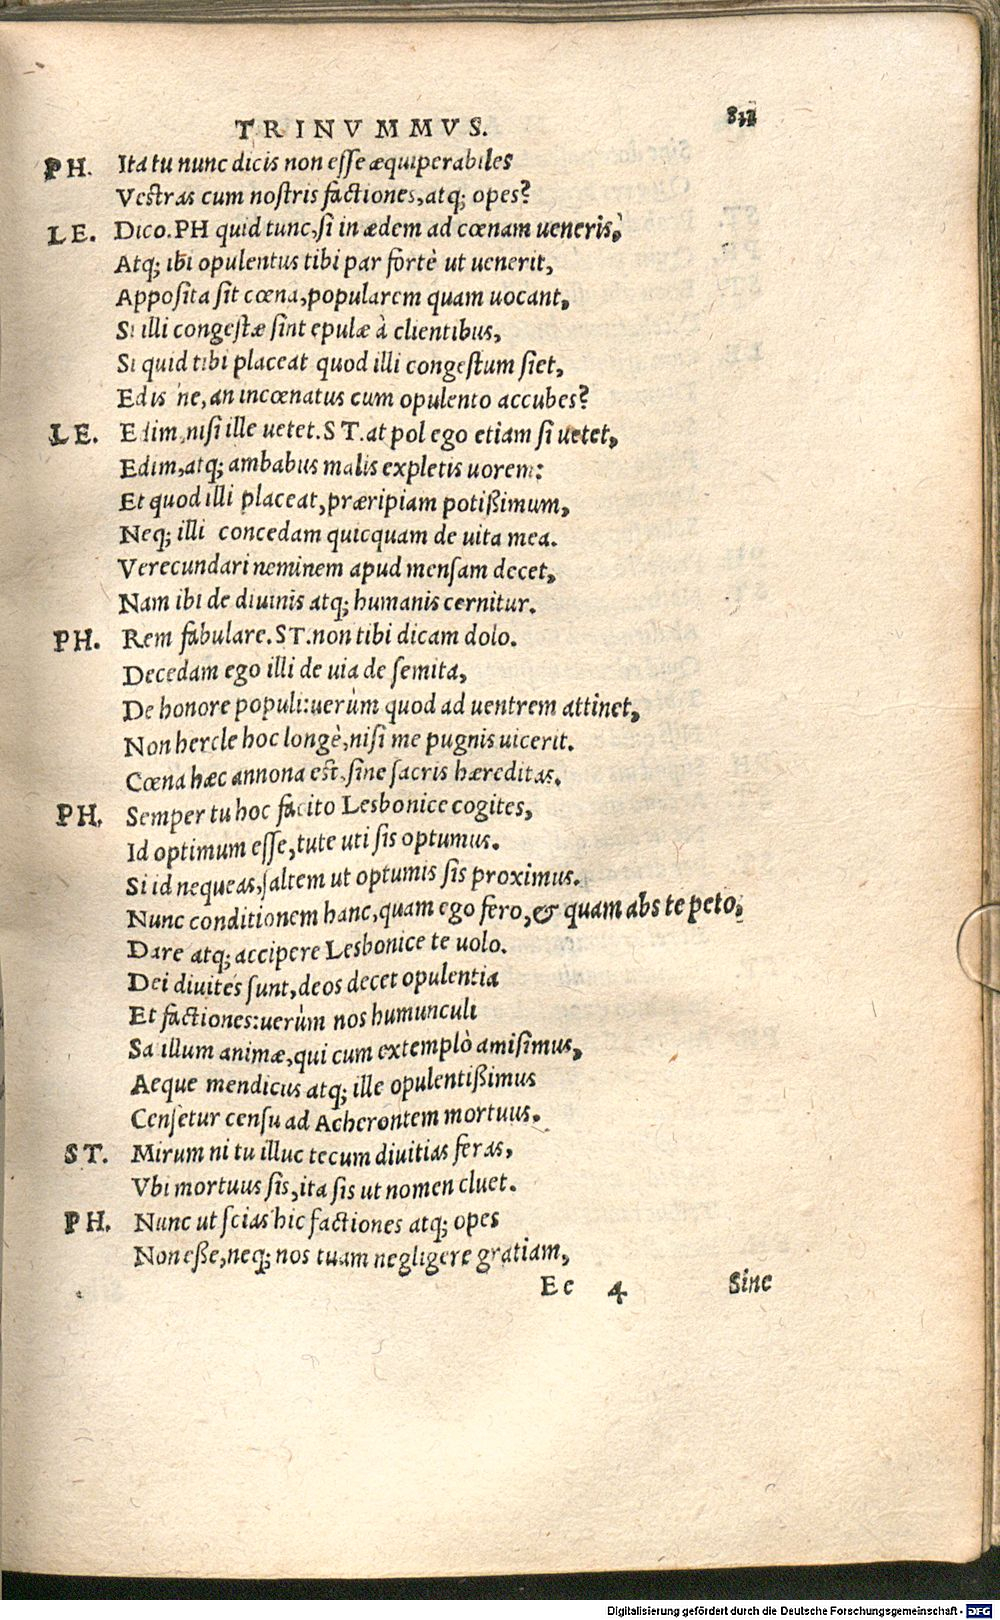 TRINVMMVS.
PH. Ita tu nunc dicis non esse æquiperabiles
Vestras cum nostris factiones, atq; opes?
LE. Dico. PH quid tunc, si in ædem ad cœnam ueneris,
Atq; ibi opulentus tibi par fortè ut uenerit,
Apposita sit cœna, popularem quam uocant,
Si illi congestæ sint epulæ à clientibus,
Si quid tibi placeat quod illi congestum siet,
Edis ne, an incœnatus cum opulento accubes?
LE. Edim, nisi ille uetet. ST. at pol ego etiam si uetet,
Edim, atq; ambabus malis expletis uorem:
Et quod illi placeat, præripiam potißimum,
Neq; illi concedam quicquam de uita mea.
Verecundari neminem apud mensam decet,
Nam ibi de diuinis atq; humanis cernitur.
PH. Rem fabulare. ST. non tibi dicam dolo.
Decedam ego illi de uia de semita,
De honore populi: uerùm quod ad uentrem attinet,
Non hercle hoc longè, nisi me pugnis uicerit.
Cœna hæc annona est, sine sacris hæreditas.
PH. Semper tu hoc facito Lesbonice cogites,
Id optimum esse, tute uti sis optumus.
Si id nequeas, saltem ut optumis sis proximus.
Nunc conditionem hanc, quam ego fero, & quam abs te peto,
Dare atq; accipere Lesbonice te uolo.
Dei diuites sunt, deos decet opulentia
Et factiones: uerùm nos humunculi
Sa illum animæ, qui cum extemplò amisimus,
Aeque mendicus atq; ille opulentißimus
Censetur censu ad Acherontem mortuus.
ST. Mirum ni tu illuc tecum diuitias feras,
Vbi mortuus sis, ita sis ut nomen cluet.
PH. Nunc ut scias hic factiones atq; opes
Non eße, neq; nos tuam negligere gratiam,
Ee 4 Sine
Digitalisierung gefördert durch die Deutsche Forschungsgemeinschaft - DFG